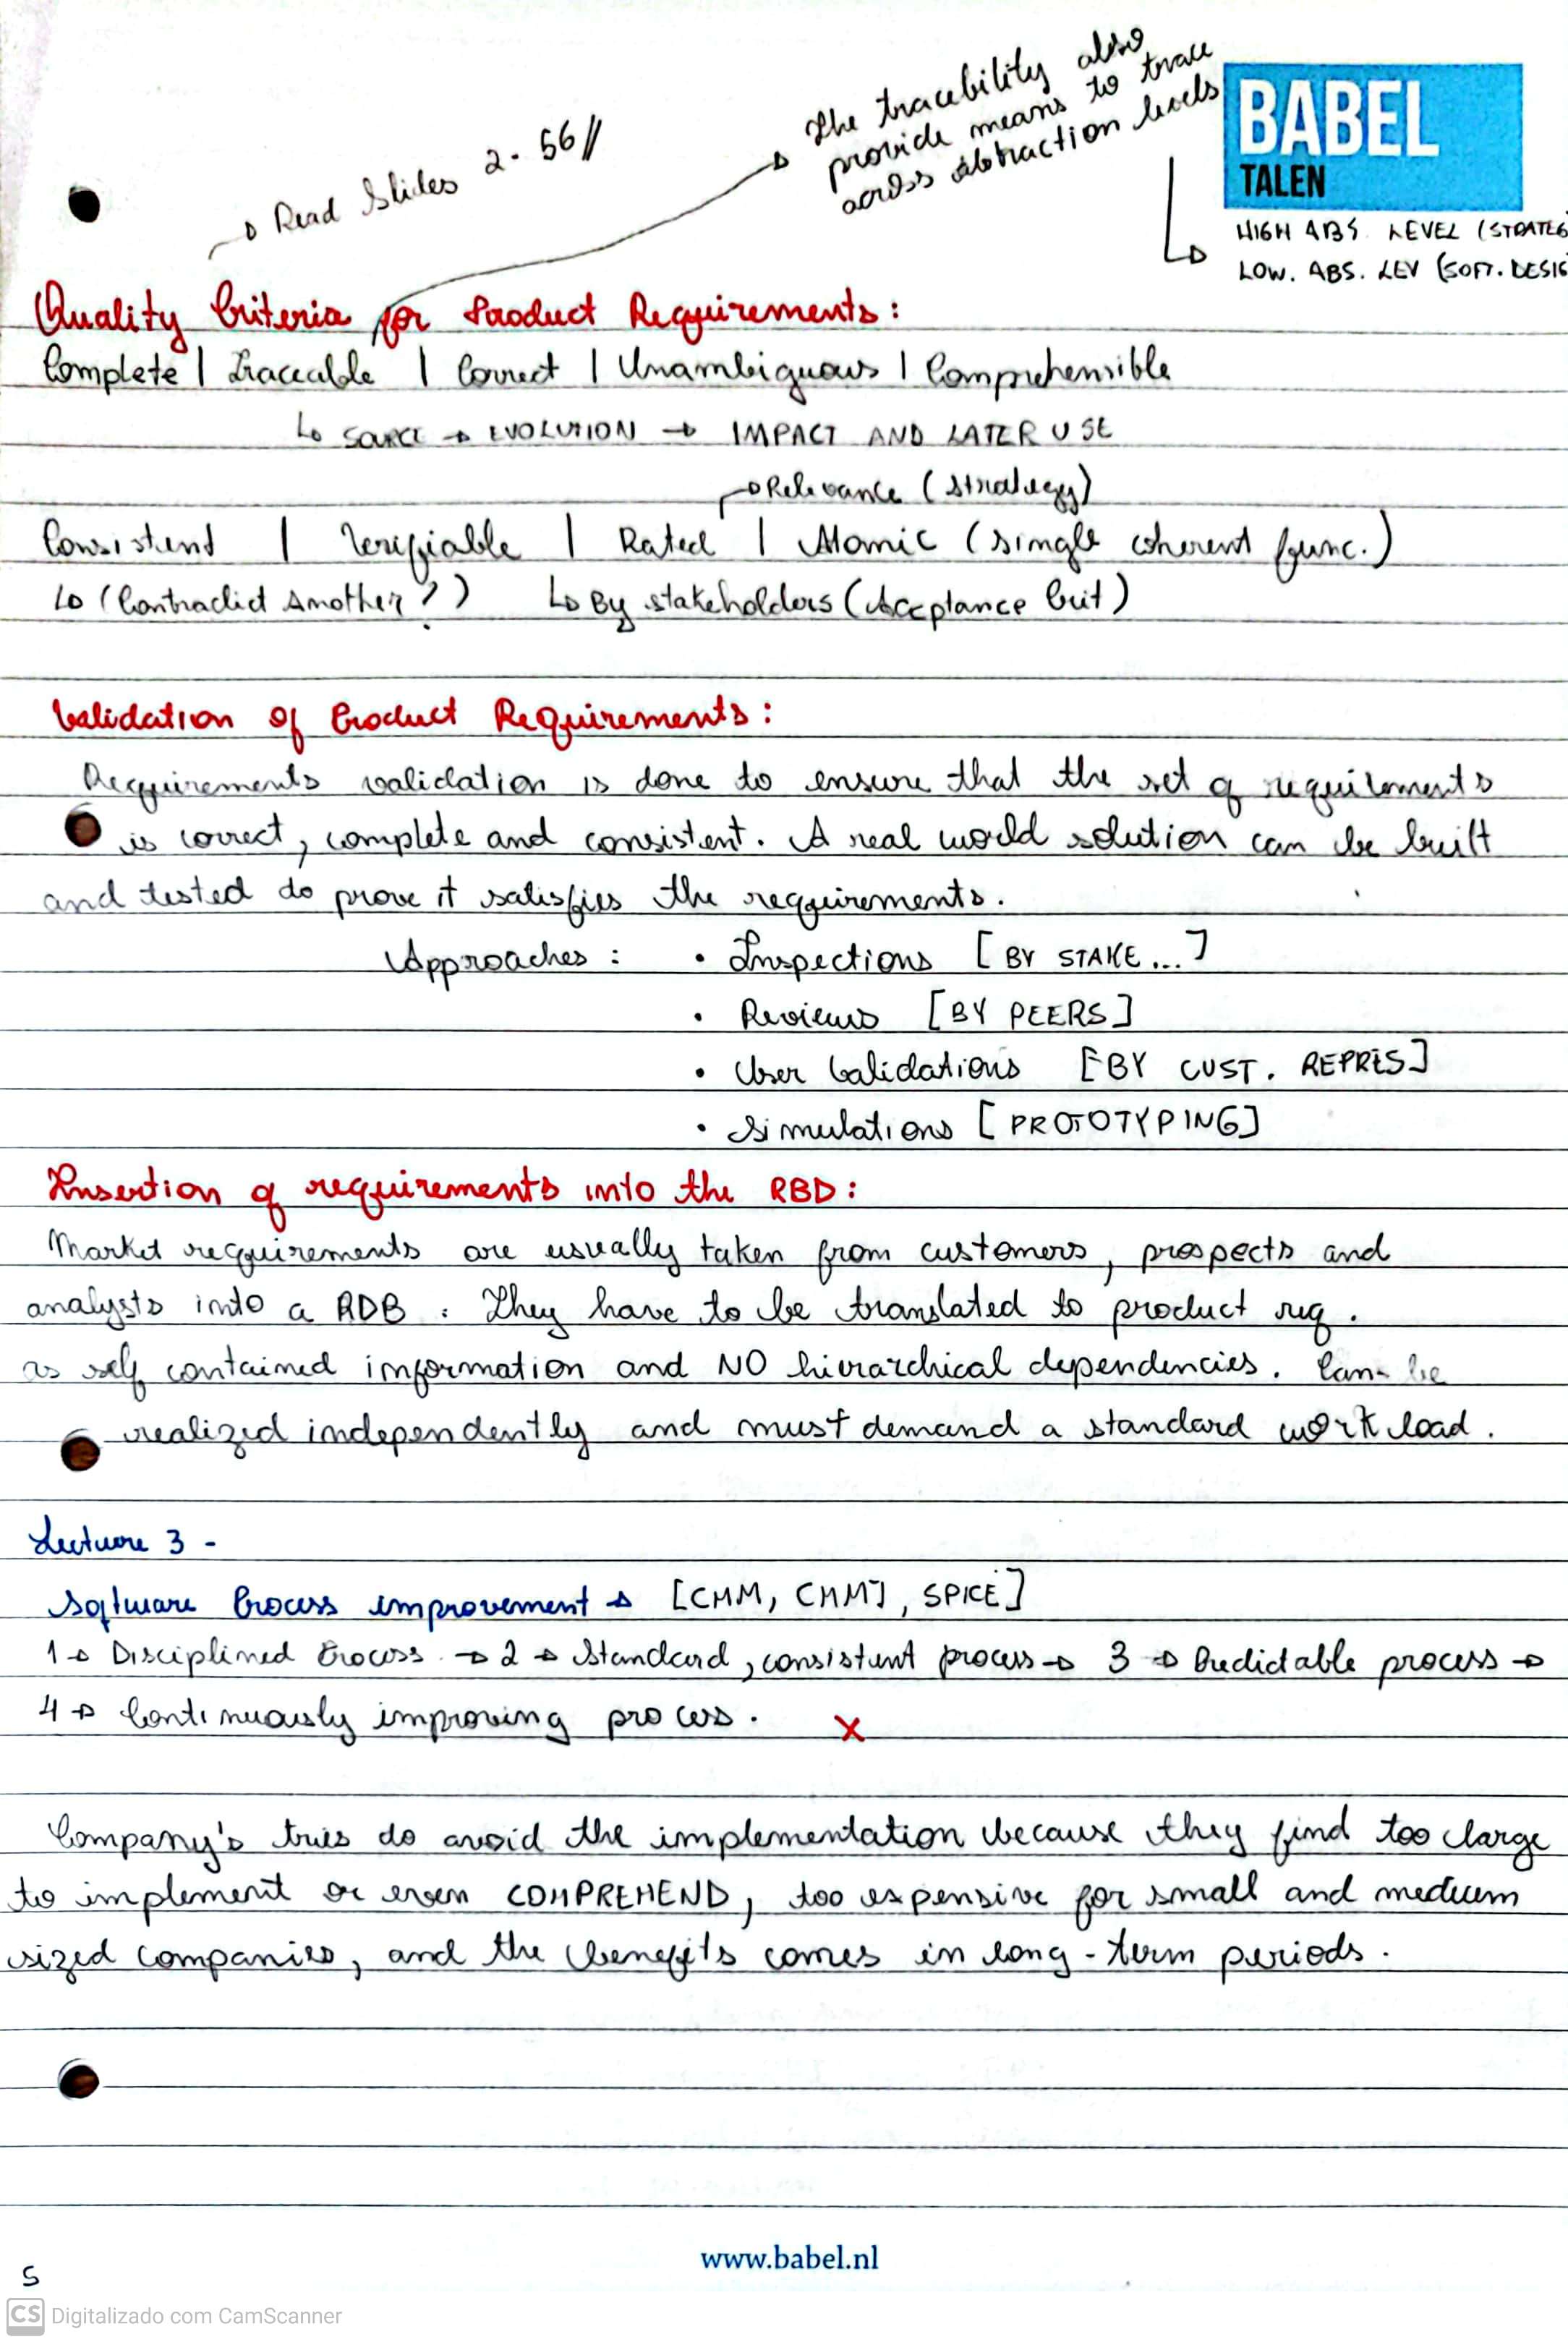 The tracebility also
provide means to trace
across abstraction levels
BABEL
TALEN
→ Read Slides 2.56//
HIGH ABS. LEVEL (STRATEG
LOW. ABS. LEV (SOFT. DESIG
Quality Criteria for Product Requirements:
Complete | Traceable | Correct | Unambiguous | Comprehensible
↳ SOURCE → EVOLUTION → IMPACT AND LATER USE
→ Relevance (Strategy)
Consistent | Verifiable | Rated | Atomic (single coherent func.)
↳ (Contradict Another?) ↳ By stakeholders (Acceptance Crit)
Validation of Product Requirements:
Requirements validation is done to ensure that the set of requirements
is correct, complete and consistent. A real world solution can be built
and tested do prove it satisfies the requirements.
Approaches : • Inspections [BY STAKE...]
• Reviews [BY PEERS]
• User Validations [BY CUST. REPRES]
• Simulations [PROTOTYPING]
Insertion of requirements into the RBD:
Market requirements are usually taken from customers, prospects and
analysts into a RDB. They have to be translated to product req.
as self contained information and NO hierarchical dependencies. Can be
realized independently and must demand a standard work load.
Lecture 3 -
Software Process improvement → [CMM, CMMI, SPICE]
1 → Disciplined Process → 2 → Standard, consistent process → 3 → Predictable process →
4 → Continuously improving process. X
Company's tries do avoid the implementation because they find too large
to implement or even COMPREHEND, too expensive for small and medium
sized companies, and the benefits comes in long-term periods.
www.babel.nl
5
CS Digitalizado com CamScanner